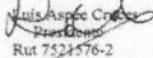 Luis Aspee C
Presidente
Rut 7521576-2